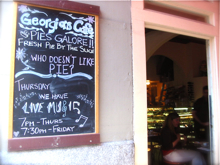 Georgia's Cafe
PIES GALORE!!
FRESH PIE BY THE SLICE
WHO DOESN'T LIKE
PIE?
THURSDAY
WE HAVE
LIVE MUSIC
7PM - THURS
7:30PM - FRIDAY